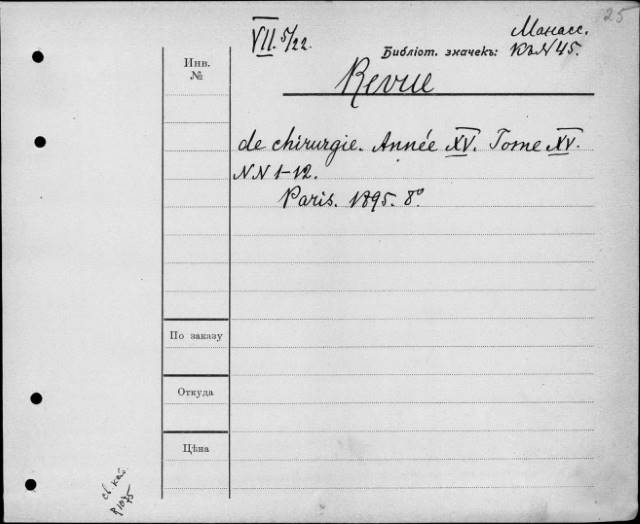 25
VII. 5/22.
Манасс.
Библіот. значекъ: Къ N 45.
Инв.
№
Revue
de chirurgie. Année XV. Tome XV.
NN 1-12.
Paris. 1895. 8°
По заказу
Откуда
Цѣна